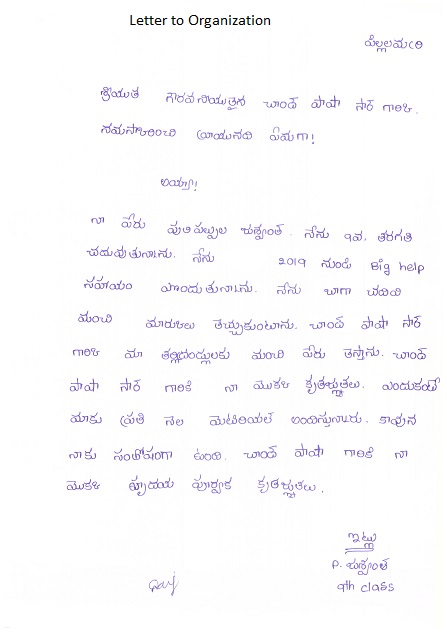 Letter to Organization
పిల్లలమర్రి
శ్రీయుత గౌరవనీయులైన చాంద్ పాషా సార్ గారికి,
నమస్కరించి వ్రాయునది ఏమనగా!
అయ్యా!
నా పేరు పులిపల్పుల యశ్వంత్. నేను 9వ, తరగతి
చదువుతున్నాను. నేను 2019 నుండి Big help
సహాయం పొందుతున్నాను. నేను బాగా చదివి
మంచి మార్కులు తెచ్చుకుంటాను. చాంద్ పాషా సార్
గారికి మా తల్లిదండ్రులకు మంచి పేరు తెస్తాను. చాంద్
పాషా సార్ గారికి నా మొక్క కృతజ్ఞతలు. ఎందుకంటే
మాకు ప్రతి నెల మెటీరియల్ అందిస్తున్నారు. కావున
నాకు సంతోషంగా ఉంది. చాంద్ పాషా గారికి నా
మొక్క హృదయ పూర్వక కృతజ్ఞతలు.
ఇట్లు
P. యశ్వంత్
9th class